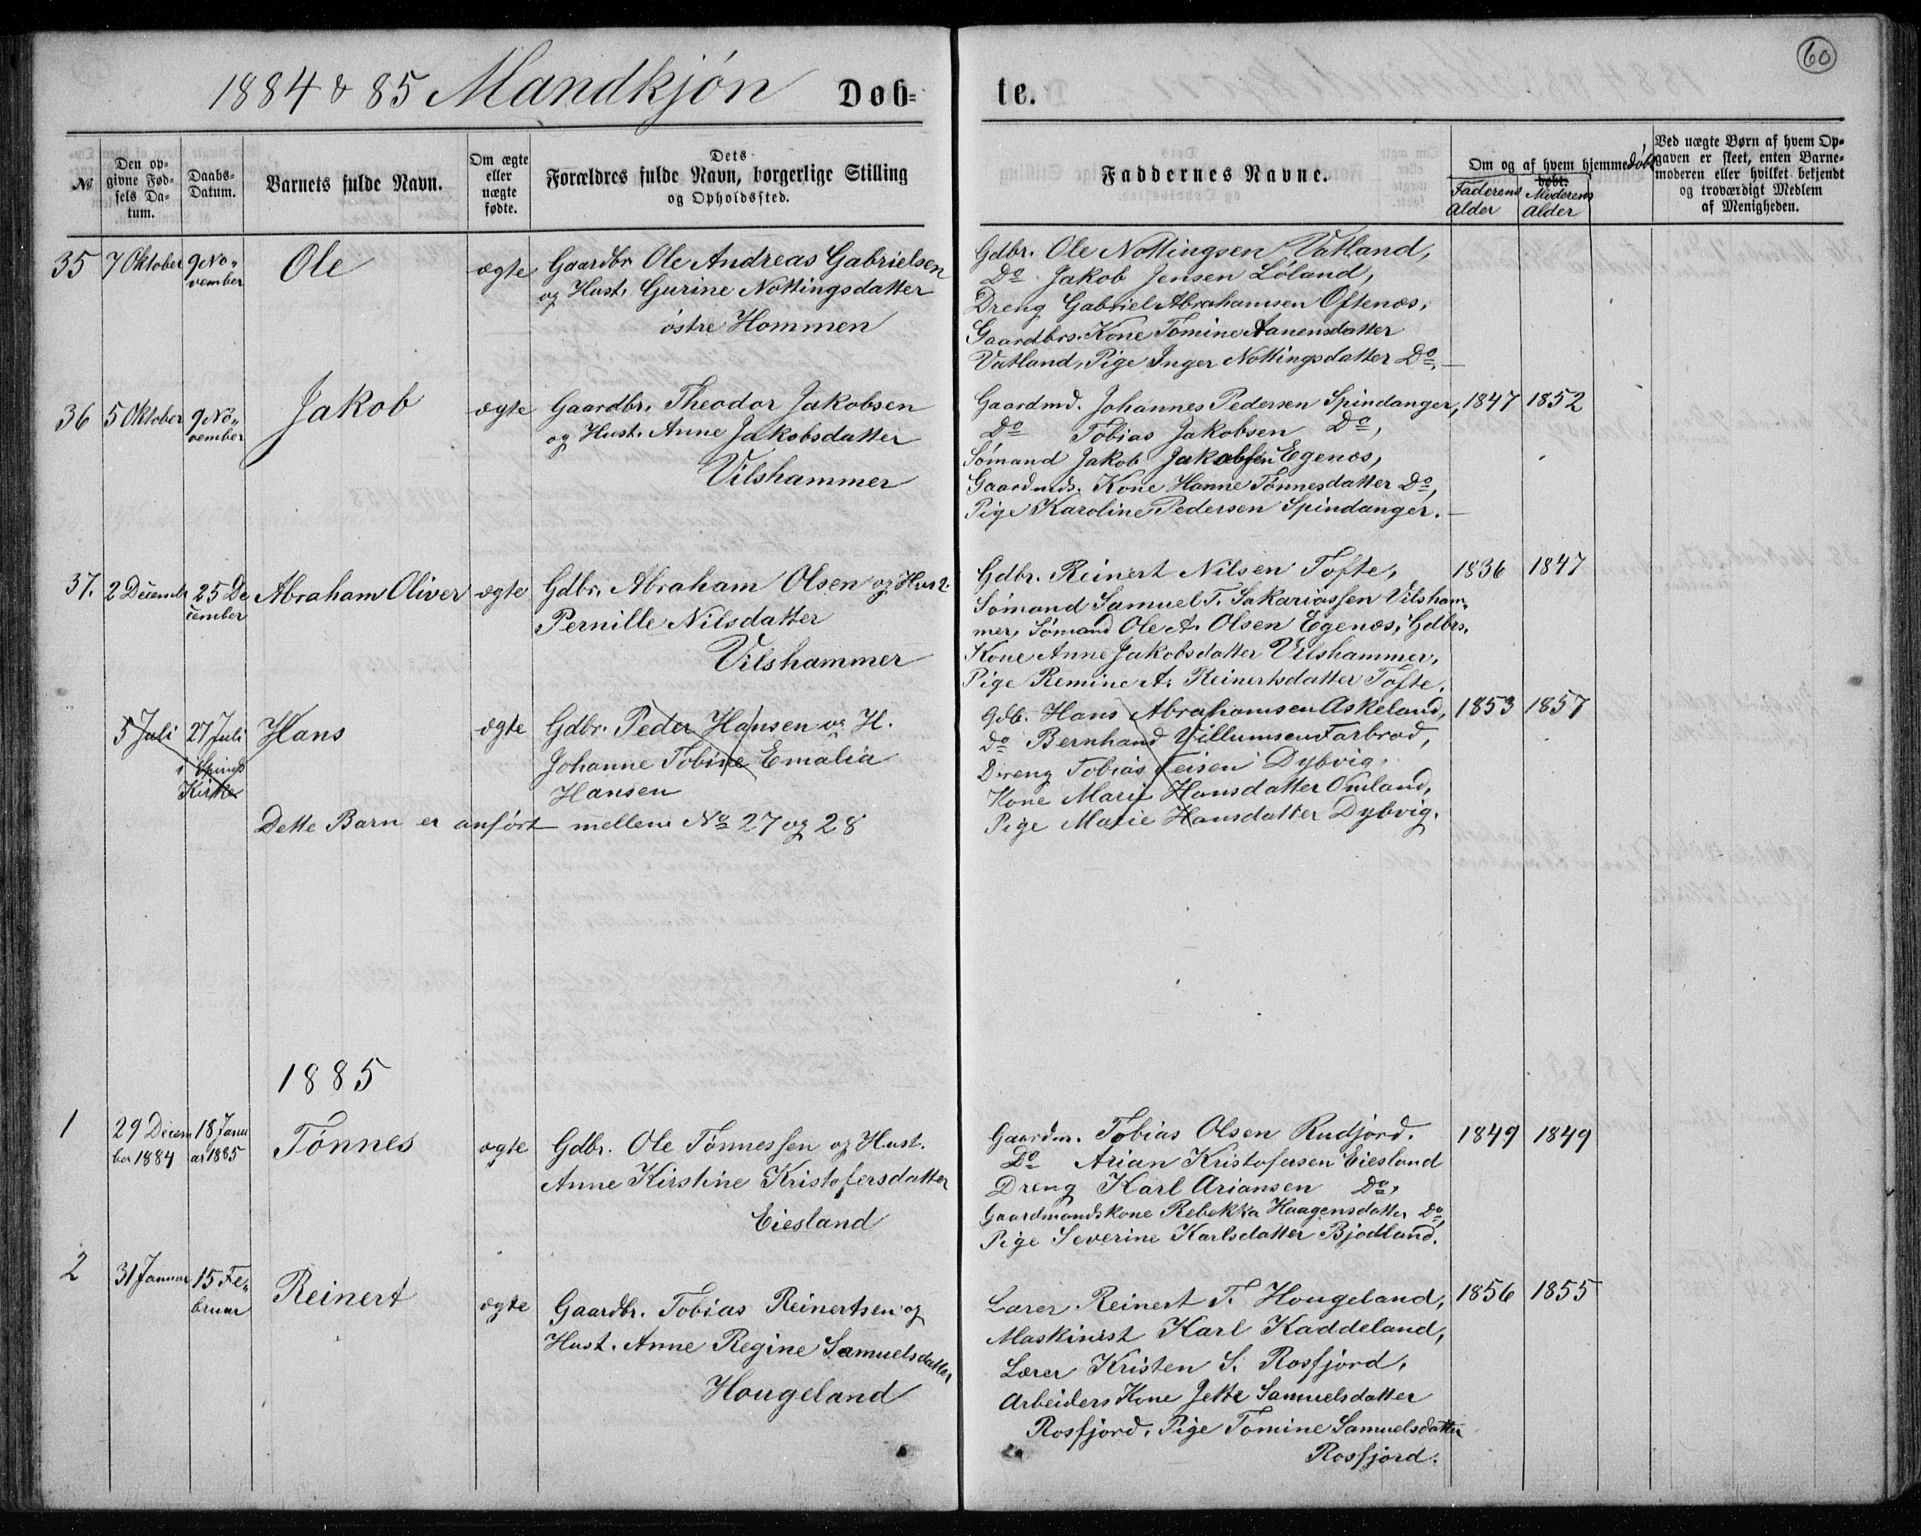 60
1884 & 85 Mandkjön Døb=
te.
№
Den op-
givne Fød-
sels Da-
tum.
Daabs-
Datum.
Barnets fulde Navn.
Om ægte
eller
uægte
fødte.
Dets
Forældres fulde Navn, borgerlige Stilling
og Opholdssted.
Faddernes Navne.
Om og af hvem hjemmedöbt
døbt.
Faderens
Alder
Moderens
Alder
Ved uægte Børn af hvem Op-
gaven er skeet, enten Barne-
moderen eller hvilket bekjendt
og troværdigt Medlem
af Menigheden.
35
7 Oktober
9 No-
vember
Ole
ægte
Gaardbr. Ole Andreas Gabrielsen
og Hust. Gurine Nottingsdatter
östre Hommen
Gdbr. Ole Nottingsen Vatland,
Do Jakob Jensen Löland,
Dreng Gabriel Abrahamsen Oftenæs,
Gaardbrs. Kone Tomine Aanensdatter
Vatland, Pige Inger Nottingsdatter Do.
36
5 Oktober
9 No-
vember
Jakob
ægte
Gaardbr. Theodor Jakobsen
og Hust. Anne Jakobsdatter
Vilshammer
Gaardmd. Johannes Pedersen Spindanger,
Do Tobias Jakobsen Do,
Sömand Jakob Jakobsen Egenæs,
Gaardmds. Kone Hanne Tönnesdatter Do,
Pige Karoline Pedersen Spindanger.
1847
1852
37.
2 Decembr
25 De
cember
Abraham Oliver
ægte
Gdbr. Abraham Olsen og Hust.
Pernille Nilsdatter
Vilshammer
Gdbr. Reinert Nilsen Tofte,
Sömand Samuel T. Sakariassen Vilsham-
mer, Sömand Ole A. Olsen Egenæs, Gdbrs.
Kone Anne Jakobsdatter Vilshammer,
Pige Remine A. Reinertsdatter Tofte.
1836
1847
5 Juli
27 Juli
i Spinds
Kirke
Hans
ægte
Gdbr. Peder Hansen og H.
Johanne Tobine Emalia
Hansen
Gdb. Hans Abrahamsen Askeland,
Do Bernhard Villumsen Farbrod,
Dreng Tobias Teisen Dybvig.
Kone Marie Hansdatter Omland,
Pige Marie Hansdatter Dybvig.
1853
1857
Dette Barn er anfört mellem No 27 og 28
1885
1
29 Decem
ber 1884
18 Janu
ar 1885
Tönnes
ægte
Gdbr. Ole Tönnessen og Hust.
Anne Kirstine Kristofersdatter
Eiesland
Gaardm. Tobias Olsen Rudjord.
Do Arian Kristofersen Eiesland
Dreng Karl Ariansen Do,
Gaardmandskone Rebekka Haagensdatter Do,
Pige Severine Karlsdatter Bjodland.
1849
1849
2
31 Januar
15 Fe-
bruar
Reinert
ægte
Gaardbr. Tobias Reinertsen og
Hust. Anne Regine Samuelsdatter
Hougeland
Lærer Reinert T. Hougeland,
Maskinist Karl Kaddeland,
Lærer Kristen S. Rosfjord,
Arbeiders Kone Jette Samuelsdatter
Rosfjord, Pige Tomine Samuelsdatter
Rosfjord.
1856
1855